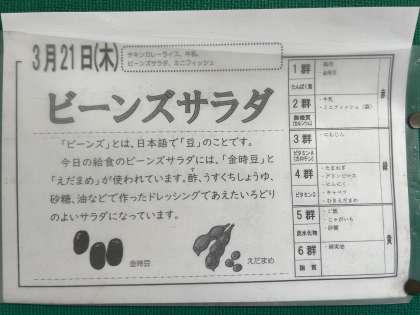 3月21日(木)
チキンカレーライス、牛乳、
ビーンズサラダ、ミニフィッシュ
ビーンズサラダ
「ビーンズ」とは、日本語で「豆」のことです。
今日の給食のビーンズサラダには、「金時豆」と
「えだまめ」が使われています。酢、うすくちしょうゆ、
砂糖、油などで作ったドレッシングであえたいろどり
のよいサラダになっています。
金時豆
えだまめ
1群
たんぱく質
・鶏肉
・金時豆
2群
無機質
(カルシウム)
・牛乳
・ミニフィッシュ(袋)
赤
3群
ビタミンA
(カロテン)
・にんじん
4群
ビタミンC
・たまねぎ
・グリンピース
・にんにく
・キャベツ
・むきえだまめ
緑
5群
炭水化物
・ご飯
・じゃがいも
・砂糖
6群
脂質
・綿実油
黄